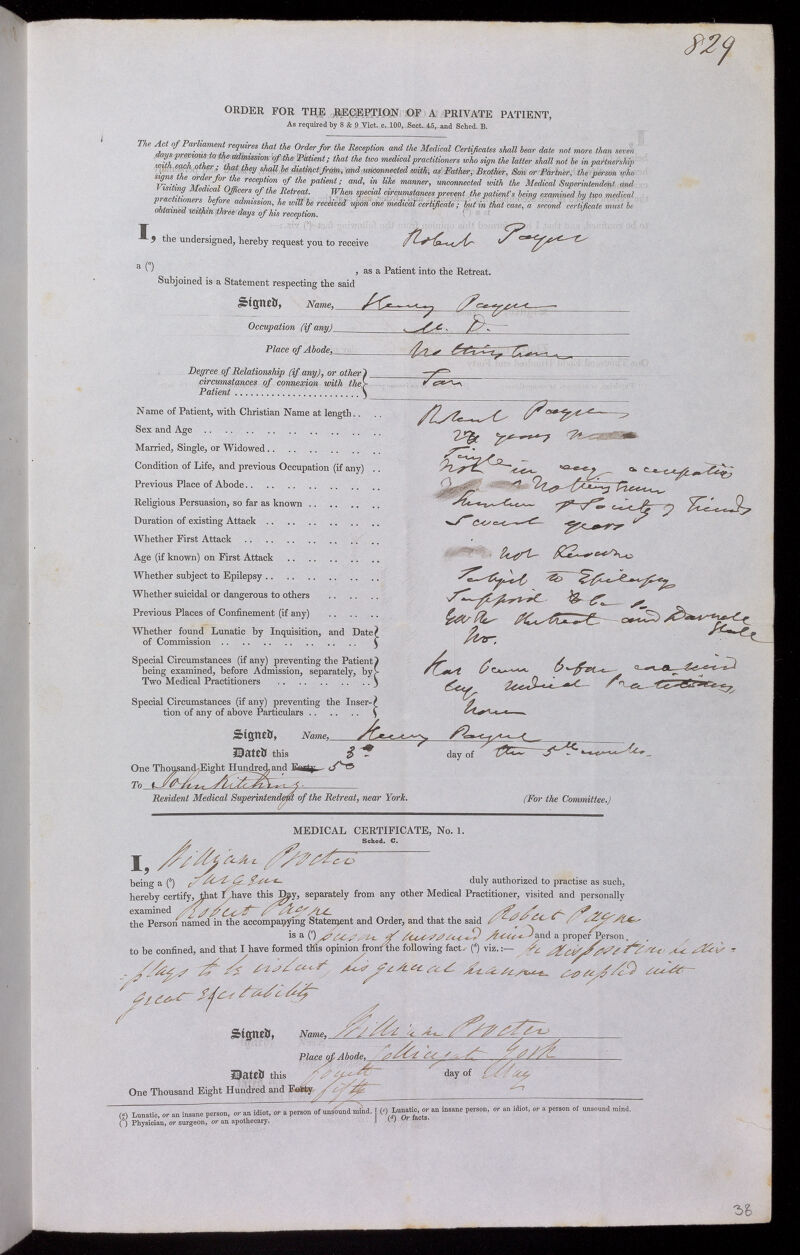 829
ORDER FOR THE RECEPTION OF A PRIVATE PATIENT,
As required by 8 & 9 Vict. c. 100, Sect. 45, and Sched. B.
The Act of Parliament requires that the Order for the Reception and the Medical Certificates shall bear date not more than seven
days previous to the admission of the Patient; that the two medical practitioners who sign the latter shall not be in partnership
with each other; that they shall be distinct from, and unconnected with, as Father, Brother, Son or Partner, the person who
signs the order for the reception of the patient; and, in like manner, unconnected with the Medical Superintendent and
Visiting Medical Officers of the Retreat. When special circumstances prevent the patient's being examined by two medical
practitioners before admission, he will be received upon one medical certificate; but in that case, a second certificate must be
obtained within three days of his reception.
I, the undersigned, hereby request you to receive Robert Payne
a (a) , as a Patient into the Retreat.
Subjoined is a Statement respecting the said
Signed, Name, Henry Payne
Occupation (if any) M. D.
Place of Abode, Nottingham
Degree of Relationship (if any), or other
circumstances of connexion with the
Patient
Name of Patient, with Christian Name at length Robert Payne
Sex and Age years
Married, Single, or Widowed Single
Condition of Life, and previous Occupation (if any) Not in any occupation
Previous Place of Abode Nottingham
Religious Persuasion, so far as known Member of Society of Friends
Duration of existing Attack Several years
Whether First Attack
Age (if known) on First Attack Not Known
Whether subject to Epilepsy Subject to Epilepsy
Whether suicidal or dangerous to others Supposed to be so
Previous Places of Confinement (if any) York Retreat and
Whether found Lunatic by Inquisition, and Date
of Commission No.
Special Circumstances (if any) preventing the Patient
being examined, before Admission, separately, by
Two Medical Practitioners Has been before examined
by medical Practitioners
Special Circumstances (if any) preventing the Inser-
tion of any of above Particulars None
Signed, Name, Henry Payne
Dated this 3d day of the 5th month
One Thousand Eight Hundred and Forty 50
To John Kitching
Resident Medical Superintendent of the Retreat, near York. (For the Committee.)
MEDICAL CERTIFICATE, No. 1.
Sched. C.
I, William Procter
being a (b) Surgeon duly authorized to practise as such,
hereby certify, that I have this Day, separately from any other Medical Practitioner, visited and personally
examined Robert Payne
the Person named in the accompanying Statement and Order, and that the said Robert Payne
is a (c) person of unsound mind and a proper Person
to be confined, and that I have formed this opinion from the following fact. (d) viz.:— disposition he dis-
-plays to be violent, his general manner coupled with
great excitability
Signed, Name, William Procter
Place of Abode, York
Dated this fourth day of May
One Thousand Eight Hundred and Forty fifty
(a) Lunatic, or an insane person, or an idiot, or a person of unsound mind.
(b) Physician, or surgeon, or an apothecary.
(c) Lunatic, or an insane person, or an idiot, or a person of unsound mind.
(d) Or facts.
38